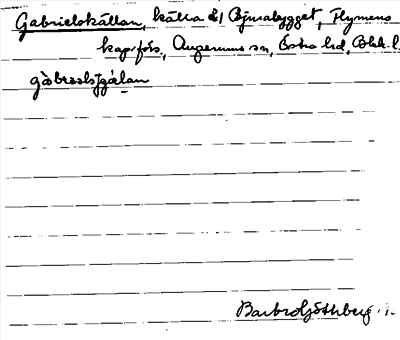 Gabrielskällan, källa å Bjurabygget, Flymens
kap.förs., Augerums sn, Östra hd, Blek. l.
gàbrɛlsɟɟälan
Barbro Göthberg.